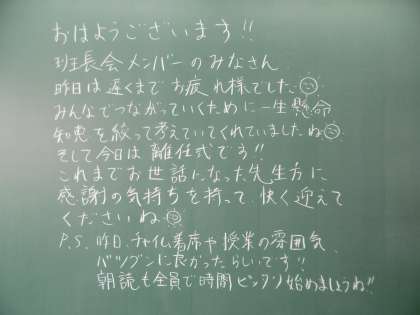 おはようございます!!
班長会メンバーのみなさん
昨日は遅くまでお疲れ様でした。
みんなでつながっていくために一生懸命
知恵を絞って考えていてくれていましたね
そして今日は離任式です!!
これまでお世話になった先生方に
感謝の気持ちを持って、快く迎えて
くださいね
P.S. 昨日、チャイム着席や授業の雰囲気
バツグンに良かったらしいです!!
朝読も全員で時間ピッタリ始めましょうね!!